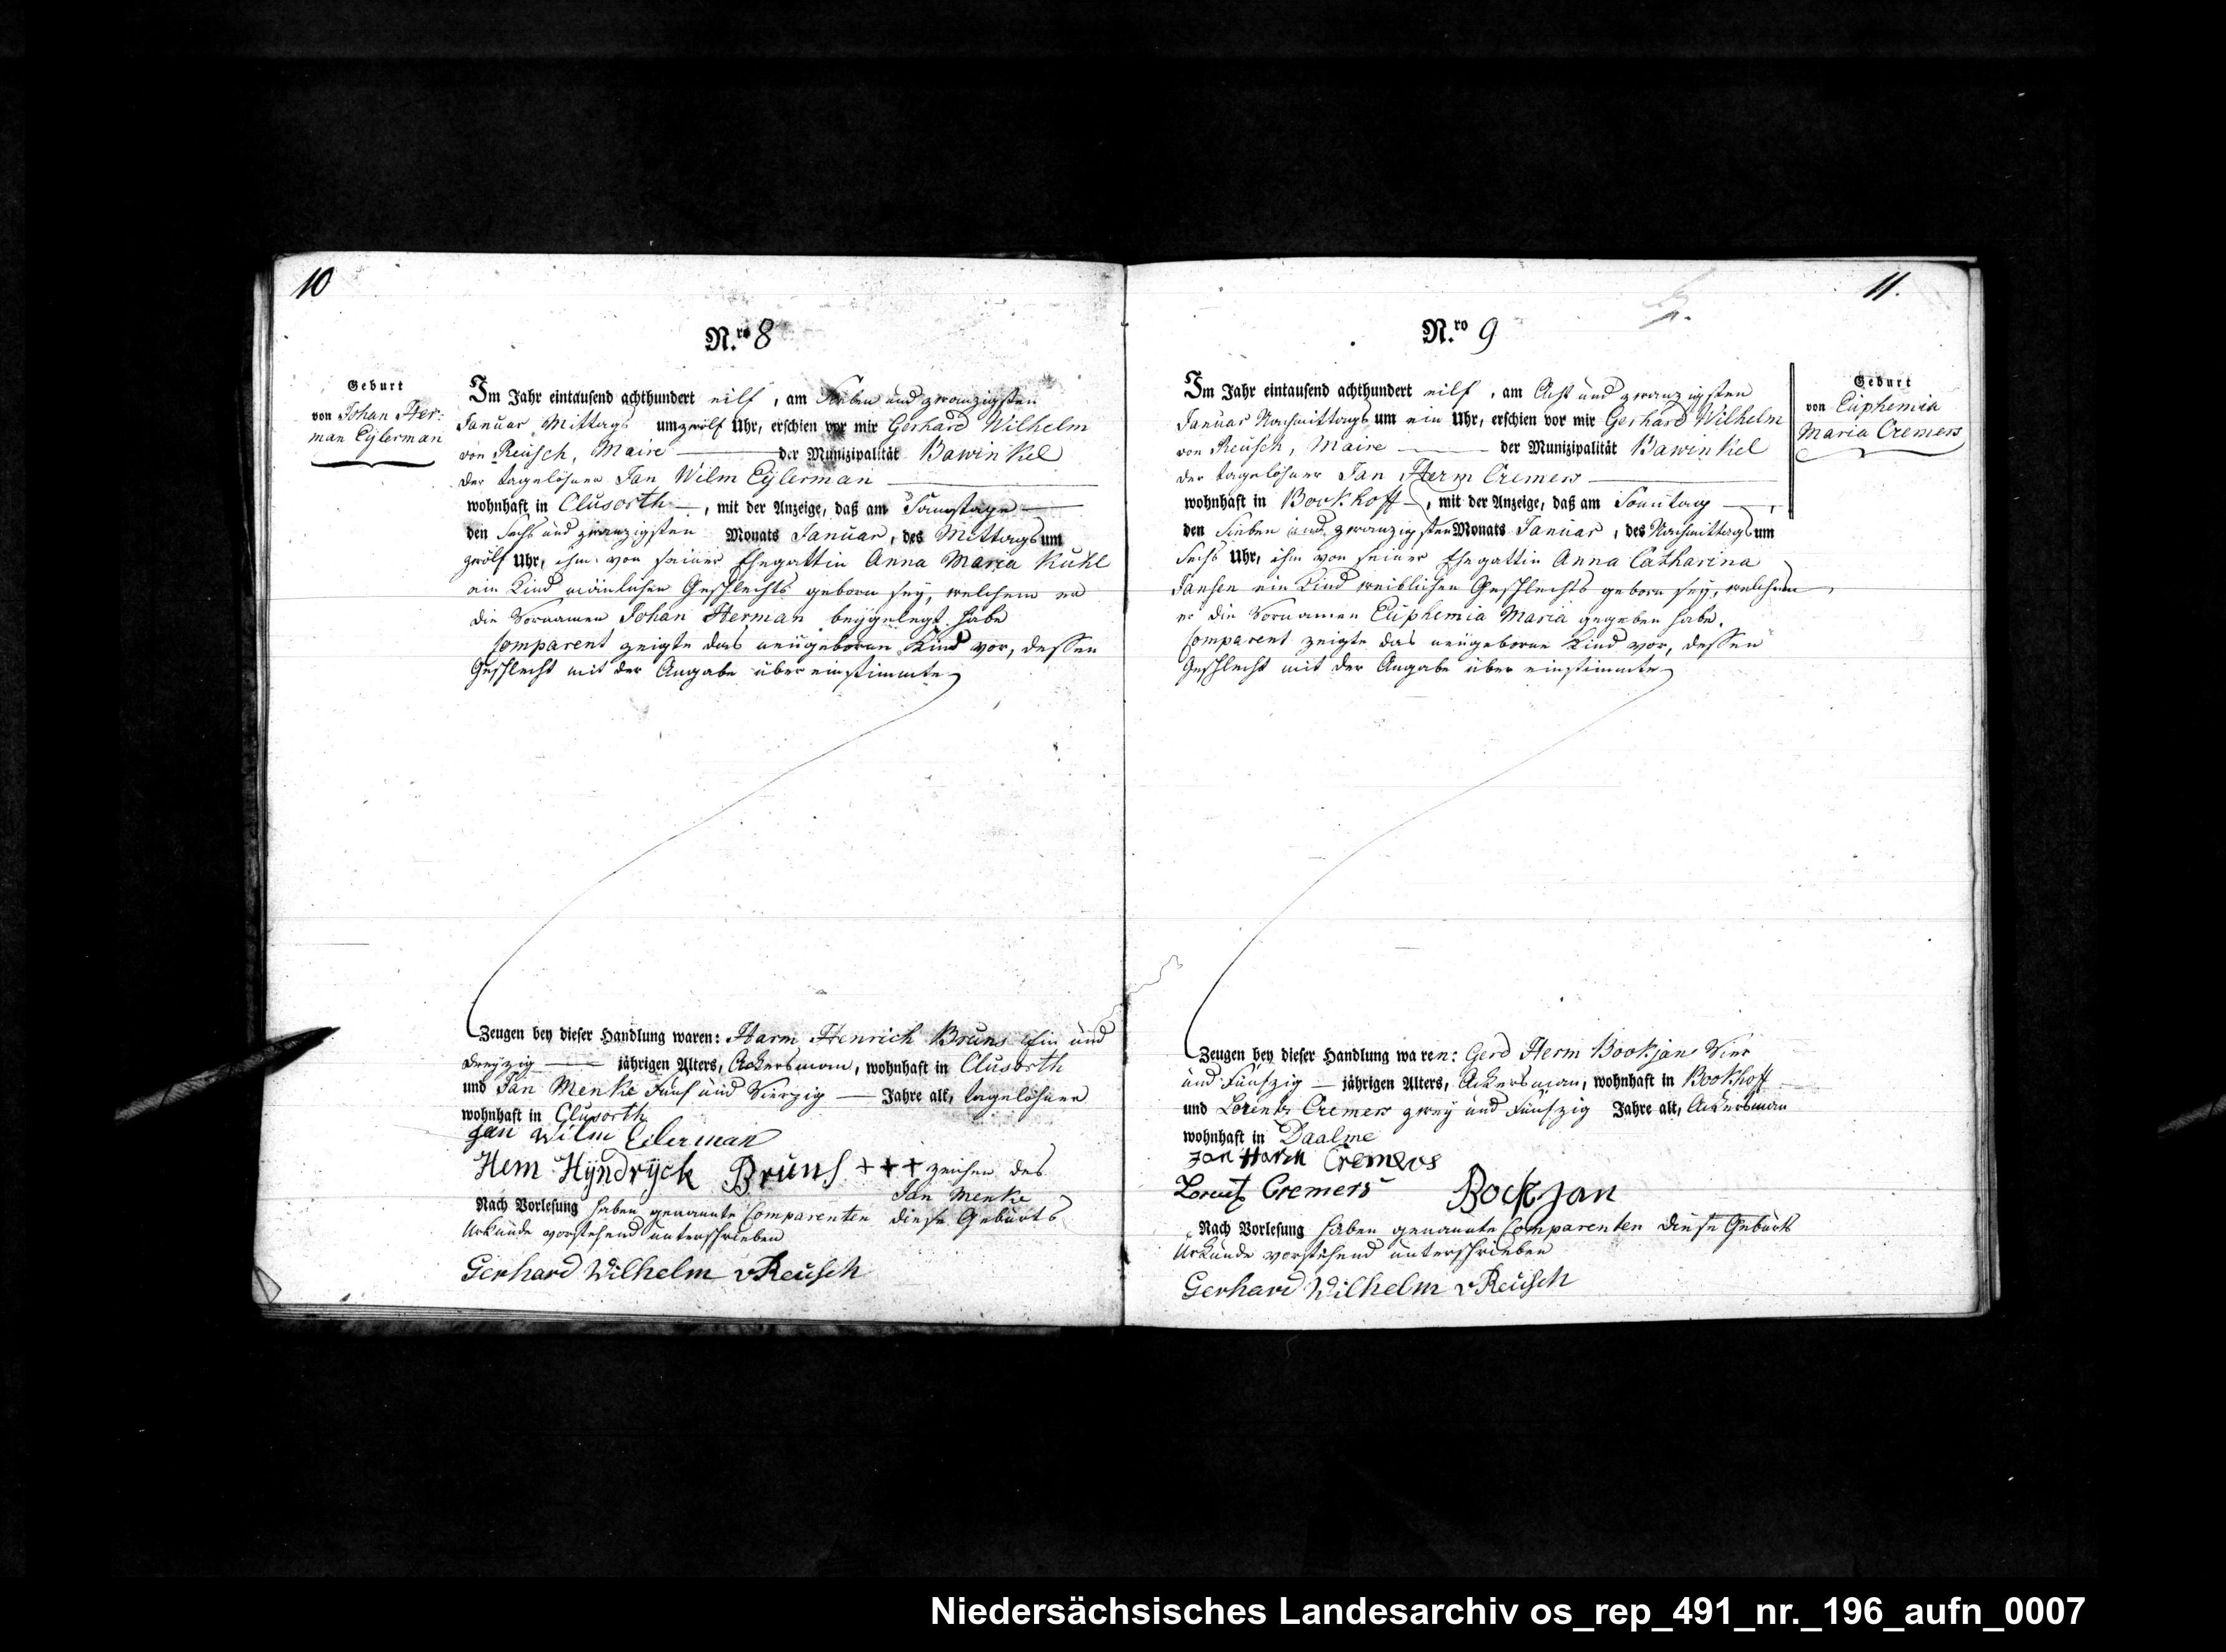 10
N.ro 8
Geburt
von Johan Her:
man Eylerman
Im Jahr eintausend achthundert eilf, am Sieben und zwanzigsten
Januar Mittags um zwölf Uhr, erschien vor mir Gerhard Wilhelm
von Reusch, Maire der Munizipalität Bawinkel
der tagelöhner Jan Wilm Eylerman
wohnhaft in Clusorth, mit der Anzeige, daß am Samstage
den Sechs und zwanzigsten Monats Januar, des Mittags um
zwölf Uhr, ihm von seiner Ehegattin Anna Maria Kuhl
ein Kind mänlichen Geschlechts geboren sey, welchem er
die Vornamen Johan Herman beygelegt habe
Comparent zeigte das neugeborne Kind vor, dessen
Geschlecht mit der Angabe übereinstimmte
Zeugen bey dieser Handlung waren: Harm Henrich Bruns Ein und
dreyzig jährigen Alters, Ackersman, wohnhaft in Clusorth
und Jan Menke Fünf und Vierzig Jahre alt, tagelöhner
wohnhaft in Clusorth
Jan Wilm Eilerman
Hem Hÿndrÿck Bruns +++ zeichen des
Jan Menke
Nach Vorlesung haben genannte Comparenten diese Geburts
Urkunde vorstehend unterschrieben
Gerhard Wilhelm vReusch
11.
N.ro 9
Geburt
von Euphemia
Maria Cremers
Im Jahr eintausend achthundert eilf, am Acht und zwanzigsten
Januar Nachmittags um ein Uhr, erschien vor mir Gerhard Wilhelm
von Reusch, Maire der Munizipalität Bawinkel
der tagelöhner Jan Herm Cremers
wohnhaft in Bookhoff, mit der Anzeige, daß am Sonntag
den Sieben und zwanzigsten Monats Januar, des Nachmittags um
Sechs Uhr, ihm von seiner Ehegattin Anna Catharina
Jansen ein Kind weiblichen Geschlechts geboren sey, welchem
er die Vornamen Euphemia Maria gegeben habe.
Comparent zeigte das neugeborne Kind vor, dessen
Geschlecht mit der Angabe über einstimmte
Zeugen bey dieser Handlung waren: Gerd Herm Bookjans Vier
und Fünfzig jährigen Alters, Ackersman, wohnhaft in Bookhoff
und Lorentz Cremers zwey und Fünfzig Jahre alt, Ackersman
wohnhaft in Daalme
Jan Harm Cremers
Lorentz Cremers Bockjan
Nach Vorlesung haben genannte Comparenten diese Geburts
Urkunde vorstehend unterschrieben
Gerhard Wilhelm vReusch
Niedersächsisches Landesarchiv os_rep_491_nr._196_aufn_0007